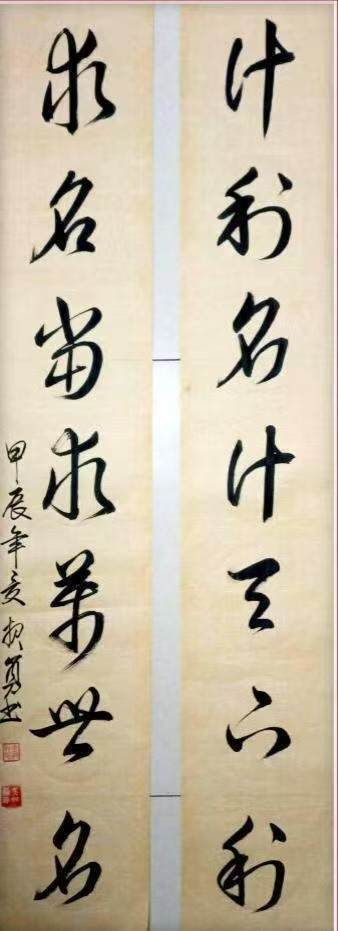 计利名计天下利
求名當求萬世名
甲辰年夏 勇书